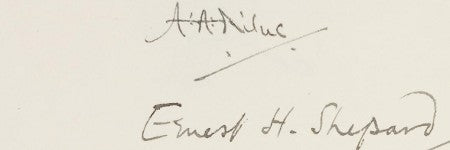 A.A. Milne
Ernest H. Shepard